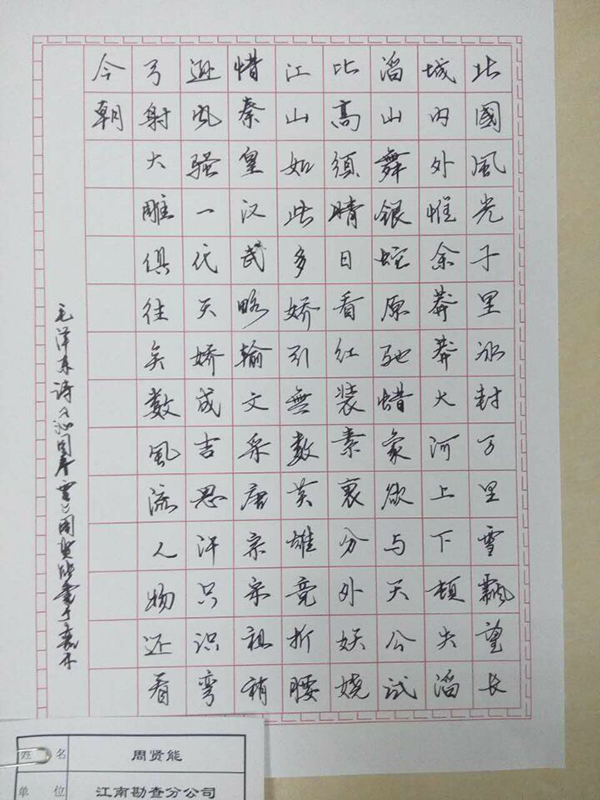 北國風光千里冰封万里雪飄望长
城内外惟余莽莽大河上下頓失滔
滔山舞银蛇原驰蜡象欲与天公试
比高须晴日看红装素裹分外妖娆
江山如此多娇引無数英雄竞折腰
惜秦皇汉武略输文采唐宗宋祖稍
逊风骚一代天娇成吉思汗只识弯
弓射大雕俱往矣数風流人物还看
今朝
毛泽东诗沁园春雪周贤能
姓名 周贤能
单位 江南勘查分公司